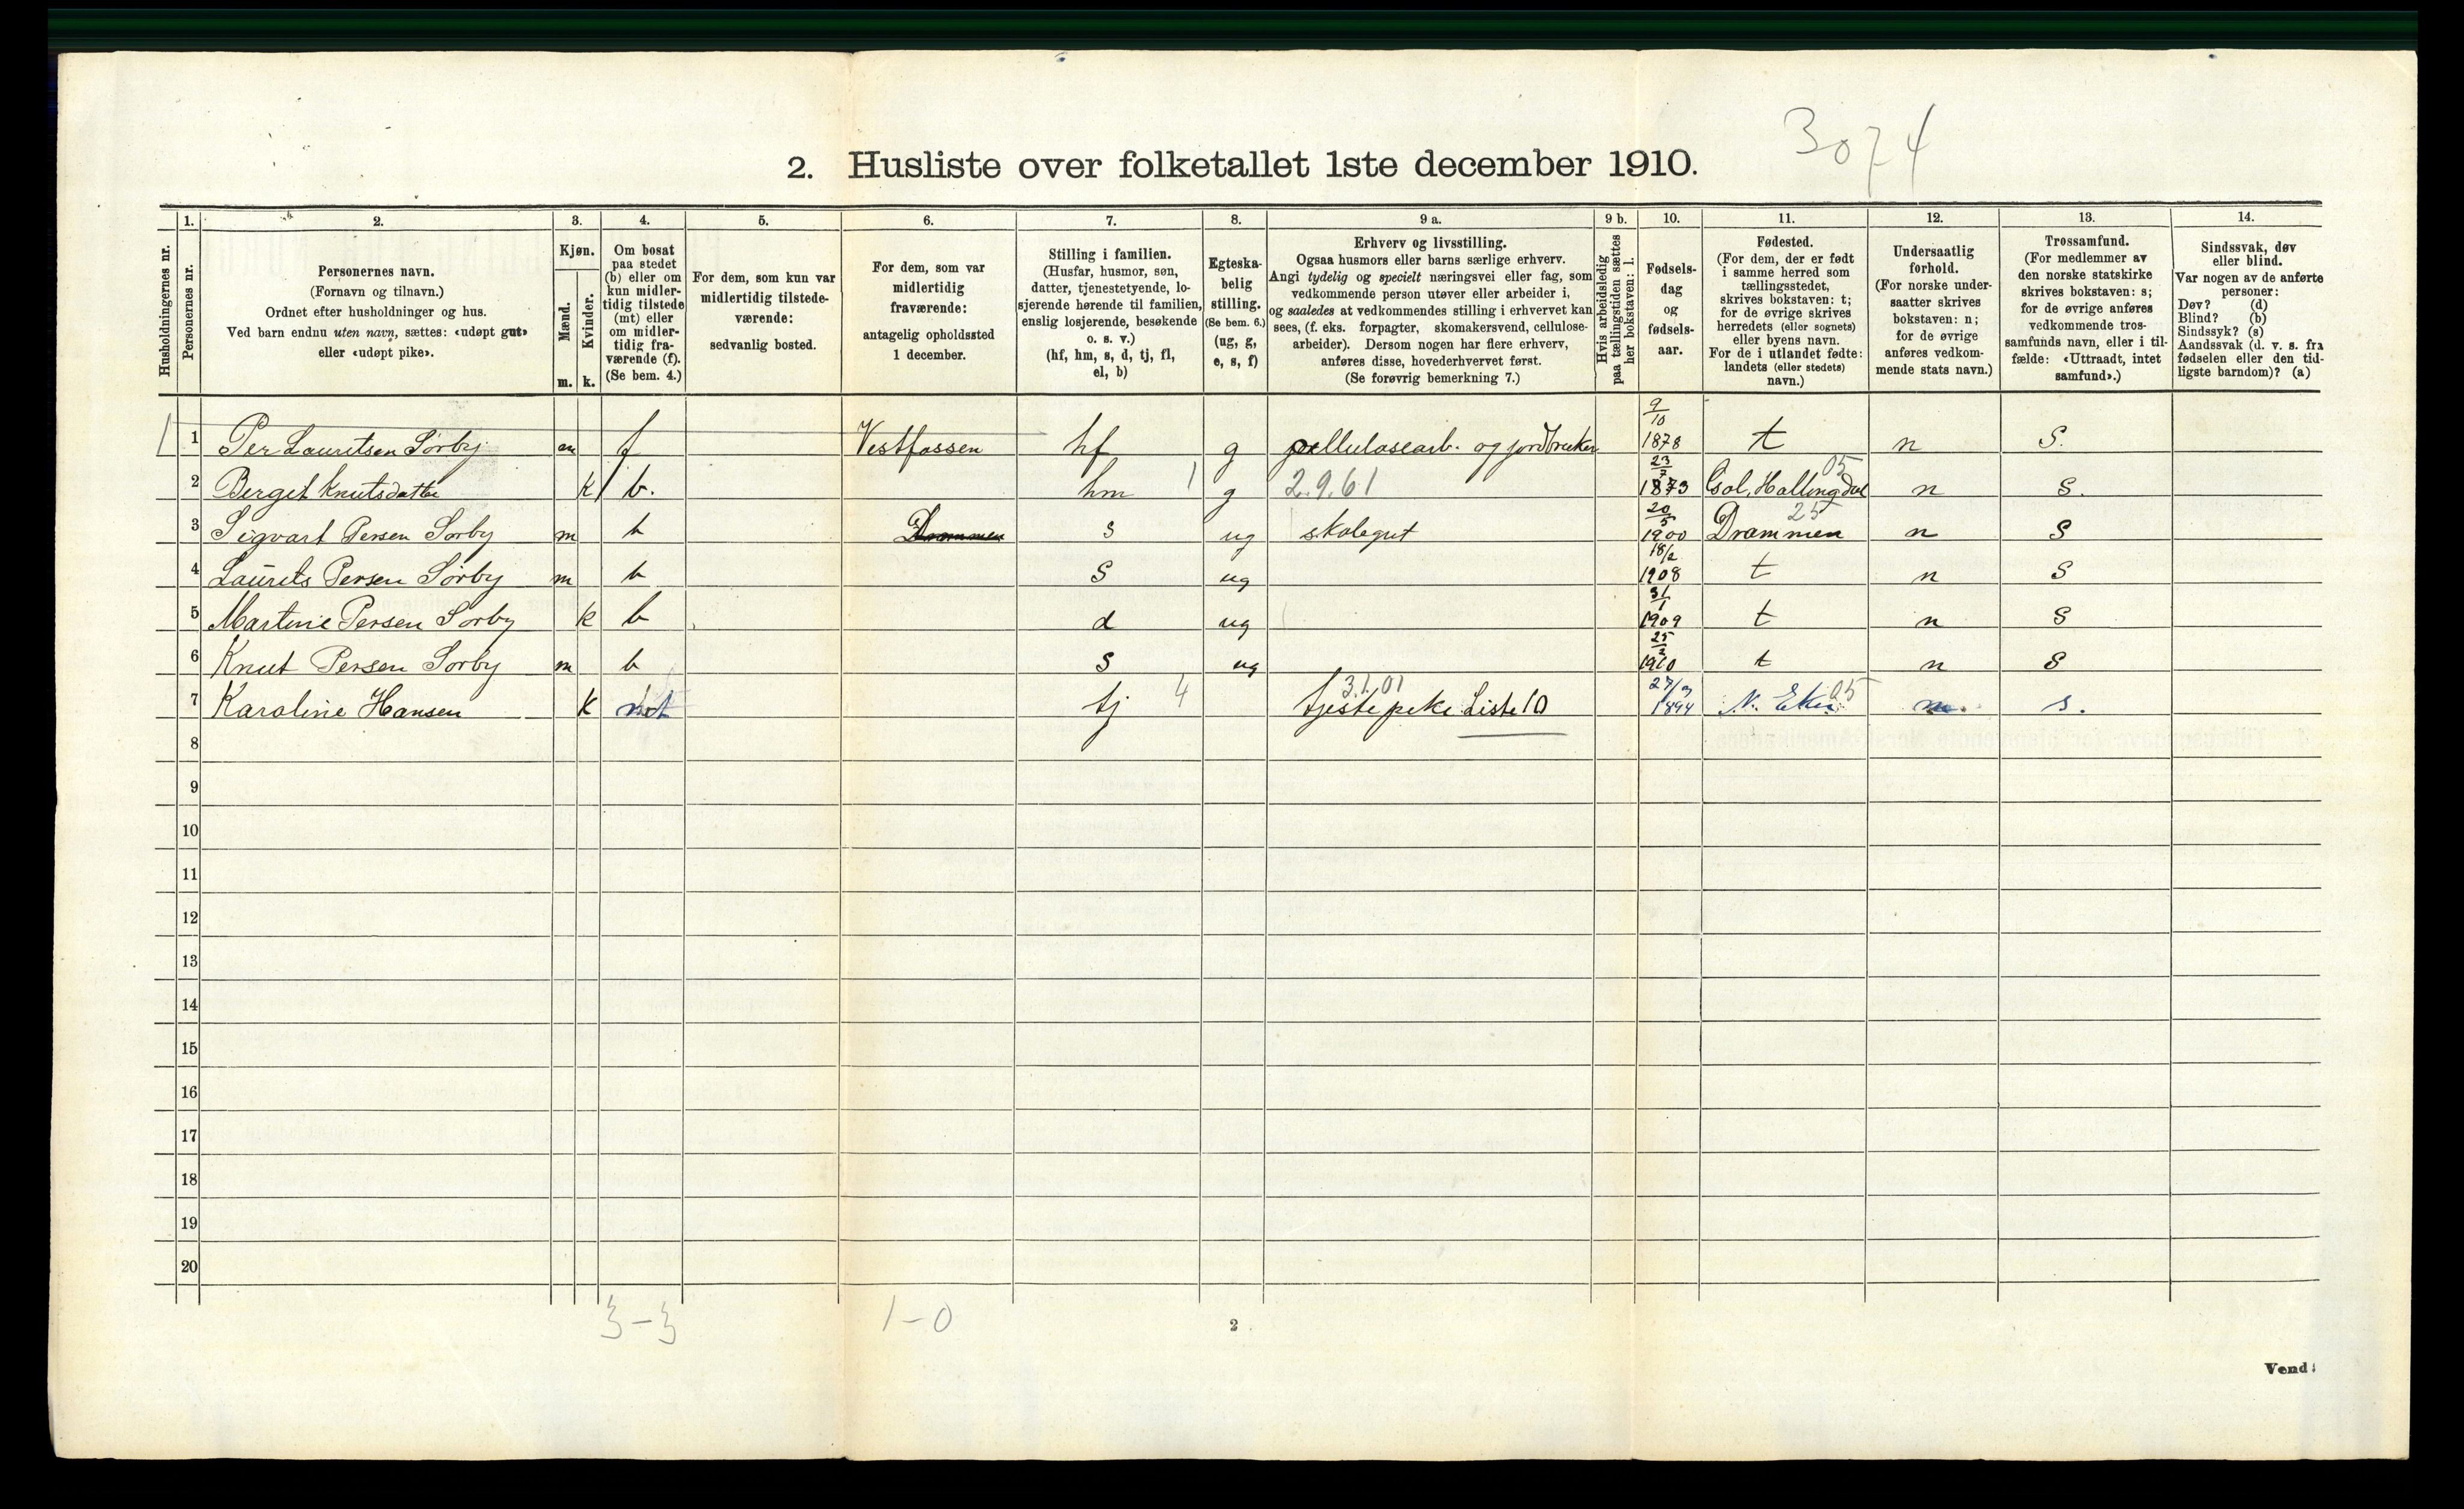 3074
2. Husliste over folketallet 1ste december 1910.
1. 2. 3. 4. 5. 6. 7. 8. 9 a. 9 b. 10. 11. 12. 13. 14.
Husholdningernes nr.
Personernes nr.
Personernes navn.
(Fornavn og tilnavn.)
Ordnet efter husholdninger og hus.
Ved barn endnu uten navn, sættes: «udøpt gut»
eller «udøpt pike».
Kjøn.
Mænd.
Kvinder.
m. k.
Om bosat
paa stedet
(b) eller om
kun midler-
tidig tilstede
(mt) eller
om midler-
tidig fra-
værende (f).
(Se bem. 4.)
For dem, som kun var
midlertidig tilstede-
værende:
sedvanlig bosted.
For dem, som var
midlertidig
fraværende:
antagelig opholdssted
1 december.
Stilling i familien.
(Husfar, husmor, søn,
datter, tjenestetyende, lo-
sjerende hørende til familien,
enslig losjerende, besøkende
o. s. v.)
(hf, hm, s, d, tj, fl,
el, b)
Egteska-
belig
stilling.
(Se bem. 6.)
(ug, g,
e, s, f)
Erhverv og livsstilling.
Ogsaa husmors eller barns særlige erhverv.
Angi tydelig og specielt næringsvei eller fag, som
vedkommende person utøver eller arbeider i,
og saaledes at vedkommendes stilling i erhvervet kan
sees, (f. eks. forpagter, skomakersvend, cellulose-
arbeider). Dersom nogen har flere erhverv,
anføres disse, hovederhvervet først.
(Se forøvrig bemerkning 7.)
Hvis arbeidsledig
paa tællingstiden sættes
her bokstaven: l.
Fødsels-
dag
og
fødsels-
aar.
Fødested.
(For dem, der er født
i samme herred som
tællingsstedet,
skrives bokstaven: t;
for de øvrige skrives
herredets (eller sognets)
eller byens navn.
For de i utlandet fødte:
landets (eller stedets)
navn.)
Undersaatlig
forhold.
(For norske under-
saatter skrives
bokstaven: n;
for de øvrige
anføres vedkom-
mende stats navn.)
Trossamfund.
(For medlemmer av
den norske statskirke
skrives bokstaven: s;
for de øvrige anføres
vedkommende tros-
samfunds navn, eller i til-
fælde: «Uttraadt, intet
samfund».)
Sindssvak, døv
eller blind.
Var nogen av de anførte
personer:
Døv? (d)
Blind? (b)
Sindssyk? (s)
Aandssvak (d. v. s. fra
fødselen eller den tid-
ligste barndom)? (a)
1 1 Per Lauritsen Sørby m f Vestfossen hf g cellulosearb. og jordbruker 9/10 1878 t n S.
2 Berget Knutsdatter k b. hm 1 g 2.9.61 23/7 1873 Gol, Hallingdal 05 n S.
3 Sigvart Persen Sørby m b Drammen s ug skolegut 20/5 1900 Drammen 25 n S
4 Laurits Persen Sørby m b S ug 18/2 1908 t n S
5 Martine Persen Sørby k b d ug 31/1 1909 t n S
6 Knut Persen Sørby m b S ug 25/2 1910 t n S
7 Karoline Hansen k mt tj 4 3.1.01 tjeste pike Liste 10 27/3 1894 N. Eker 05 n. s.
8
9
10
11
12
13
14
15
16
17
18
19
20
3-3 1-0
2
Vend!